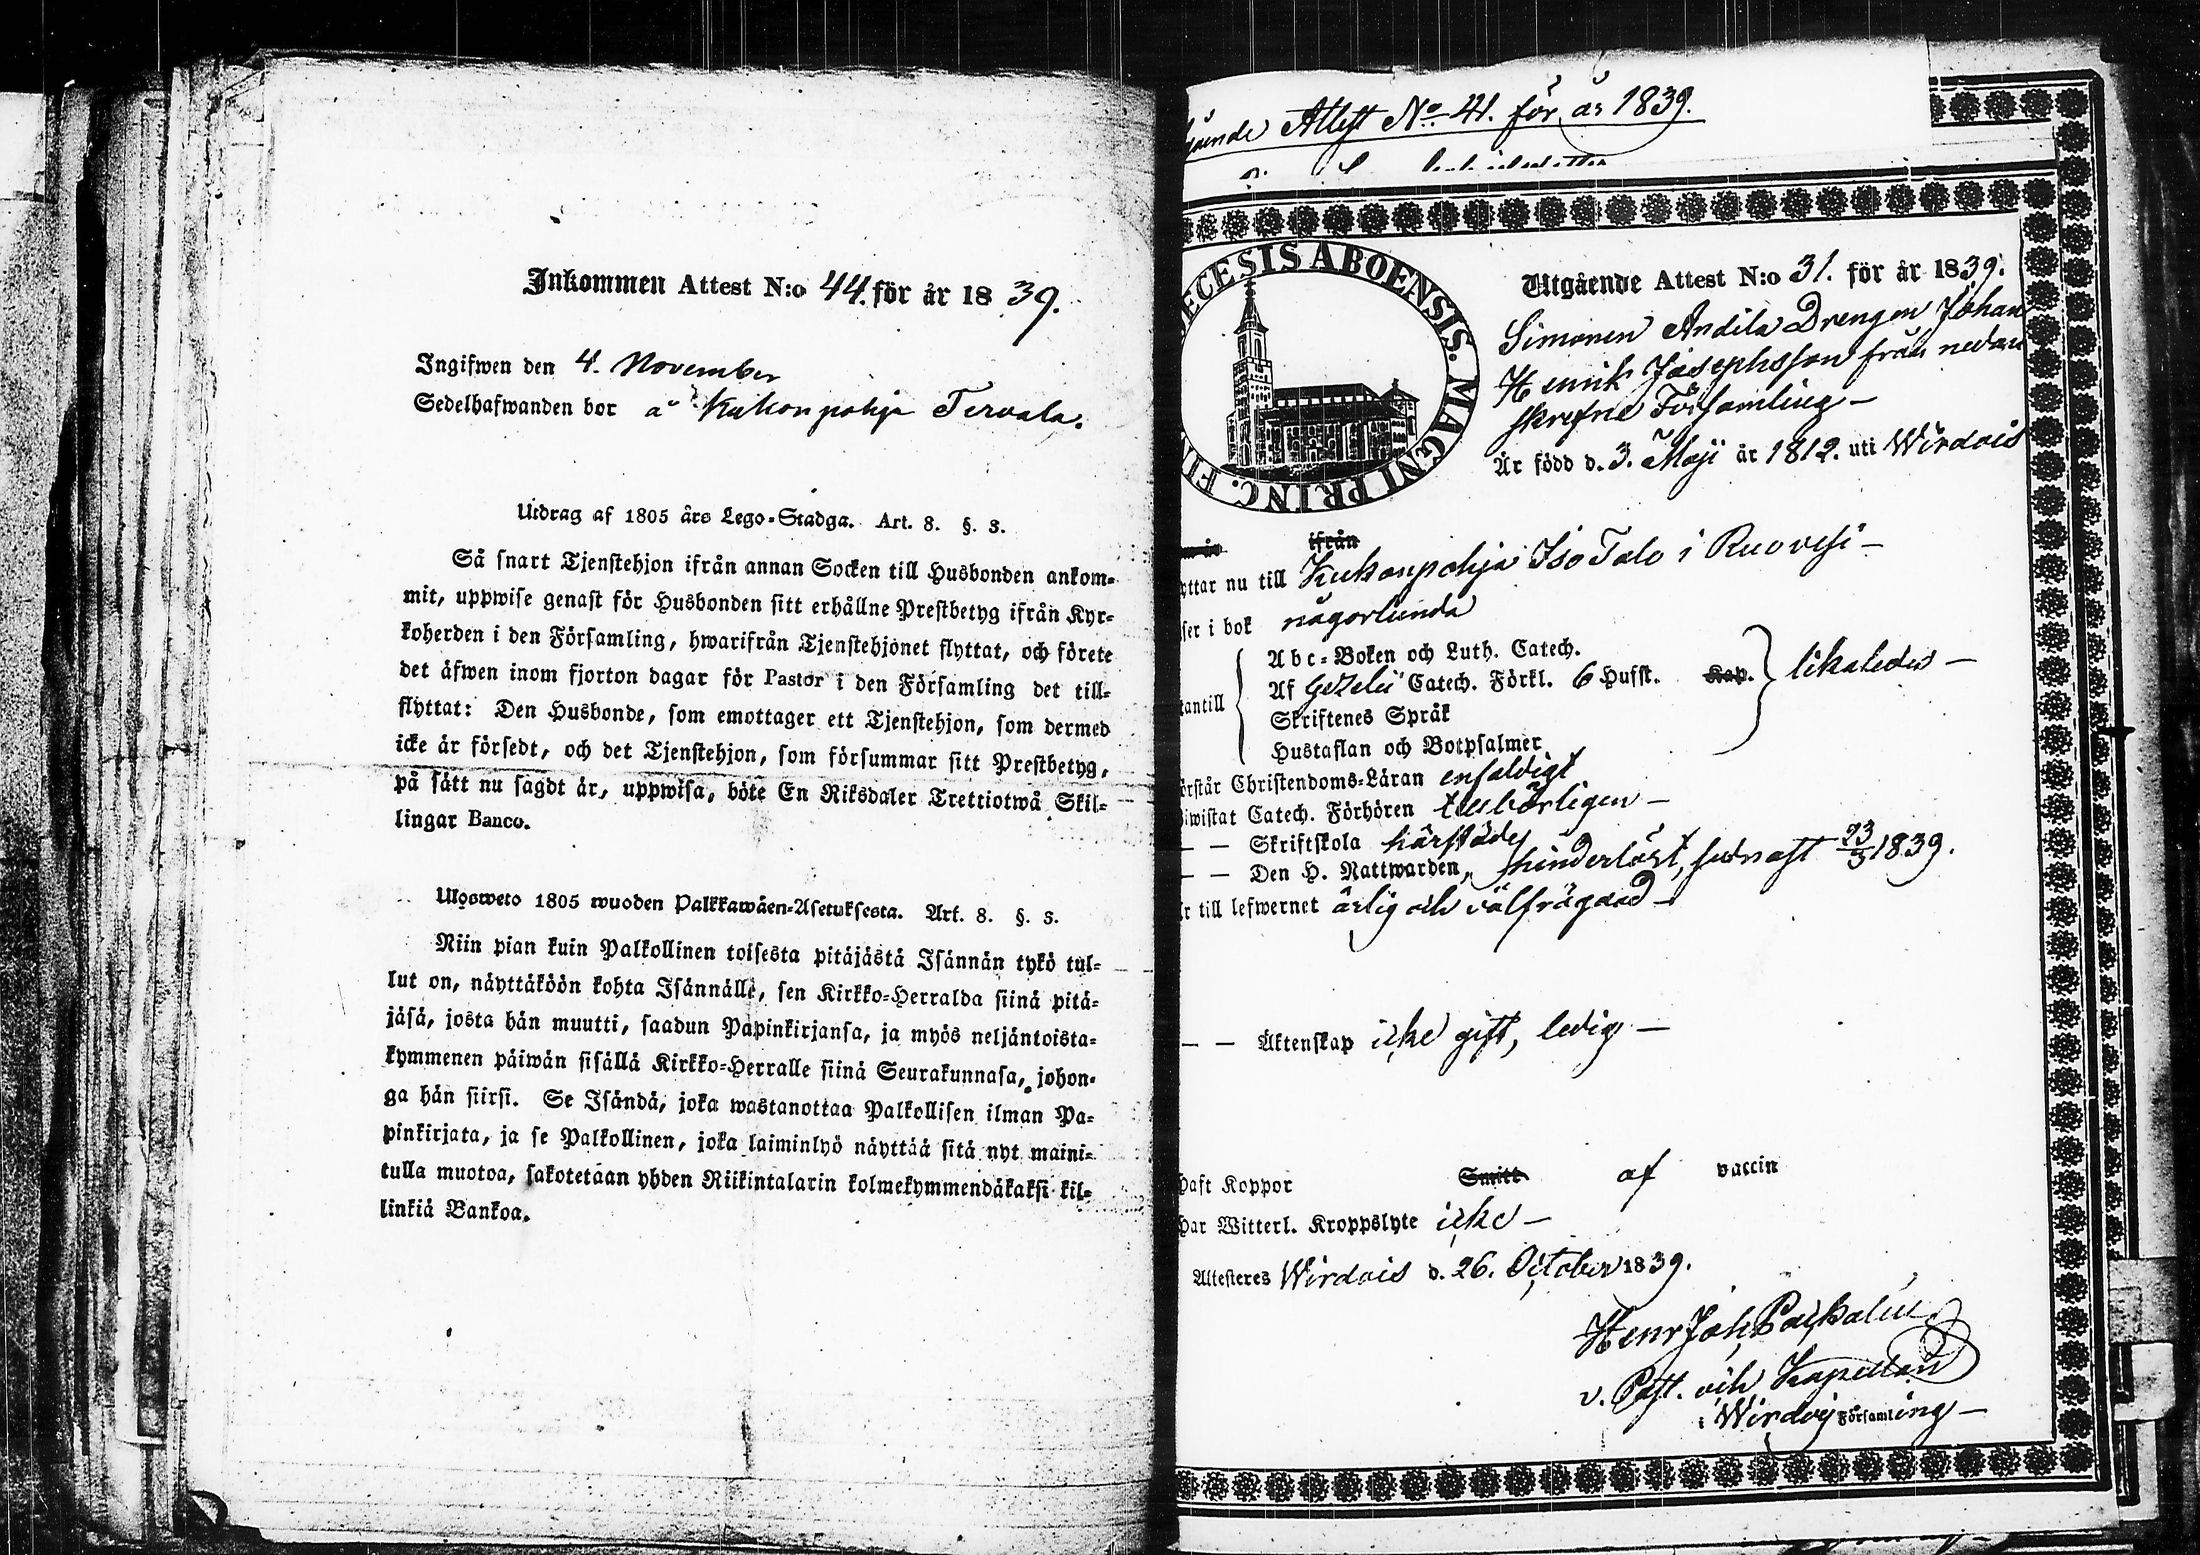 Inkommen Attest N:o 44. för år 1839.
Ingifwen den 4. November
Sedelhafwanden bor å Kukonpohja Tervala.
Utdrag af 1805 års Lego-Stadga. Art. 8. §. 3.
Så snart Tjenstehjon ifrån annan Socken till Husbonden ankom-
mit, uppwise genast för Husbonden sitt erhållne Prestbetyg ifrån Kyr-
koherden i den Församling, hwarifrån Tjenstehjonet flyttat, och förete
det äfwen inom fjorton dagar för Pastor i den Församling det till-
flyttat: Den Husbonde, som emottager ett Tjenstehjon, som dermed
icke är försedt, och det Tjenstehjon, som försummar sitt Prestbetyg,
på sätt nu sagdt är, uppwisa, böte En Riksdaler Trettiotwå Skil-
lingar Banco.
Ulosweto 1805 wuoden Palkkawäen-Asetuksesta. Art. 8. §. 3.
Niin pian kuin Palkollinen toisesta pitäjästä Isännän tykö tul-
lut on, näyttäköön kohta Isännälle, sen Kirkko-Herralda siinä pitä-
jäsä, josta hän muutti, saadun Papinkirjansa, ja myös neljäntoista-
kymmenen päiwän sisällä Kirkko-Herralle siinä Seurakunnasa, johon-
ga hän siirsi. Se Isändä, joka wastanottaa Palkollisen ilman Pa-
pinkirjata, ja se Palkollinen, joka laiminlyö näyttää sitä nyt maini-
tulla muotoa, sakotetaan yhden Riikintalarin kolmekymmendäkaksi kil-
linkiä Bankoa.
Attest No 41. för år 1839.
ECESIS ABOENSIS. MAGNI PRINC. FIN
Utgående Attest N:o 31. för år 1839.
Simonen Andila Drengen Johan
Henrik Josephsson från nedan
skrefne Församling –
År född d. 3. Maji år 1812. uti Wirdois
ifrån
yttar nu till Kukonpohja Iso Talo i Ruovesi –
ser i bok någorlunda
Abc-Boken och Luth. Catech.
tantill Af Gezelii Catech. Förkl. 6 Hufst. Kap. likaledes –
Skriftenes Språk
Hustaflan och Botpsalmer
örstår Christendoms-Läran enfaldigt
iwistat Catech. Förhören tillbörligen –
– – Skriftskola härstädes
– – Den H. Nattwarden, hinderlöst, sednast 23/3 1839.
r till lefwernet ärlig och välfrägdad –
– – Äktenskap icke gift, ledig –
haft Koppor Smitt. af vaccin
har Witterl. Kroppslyte icke –
Attesteres Wirdois d. 26. October 1839.
Henr Joh
v. Past. och Kapellan
i Wirdois Församling –